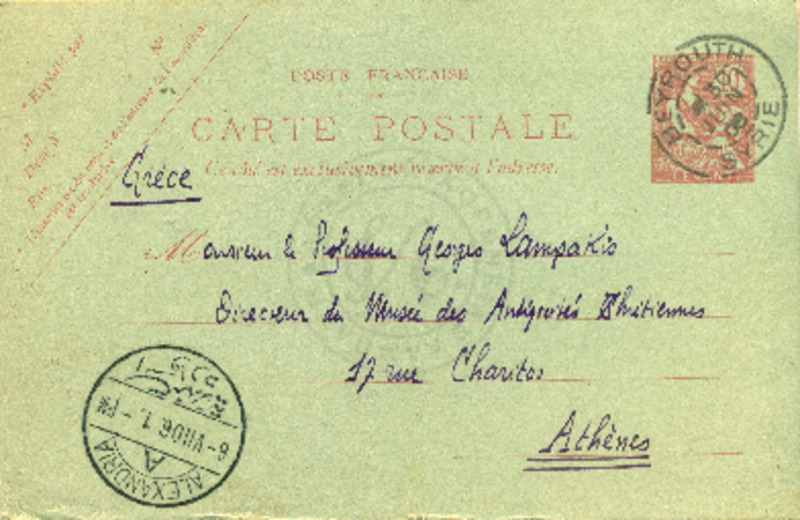 POSTE FRANÇAISE
CARTE POSTALE
Ce côté est exclusivement réservé à l'adresse.
Grèce
Monsieur le Professeur Georges Lampakis
Directeur du Musée des Antiquités Chrétiennes
17 rue Charitos
Athènes
BEYROUTH
SYRIE
ALEXANDRIA
A
6-VII 06. 1 - PM
Expédié par